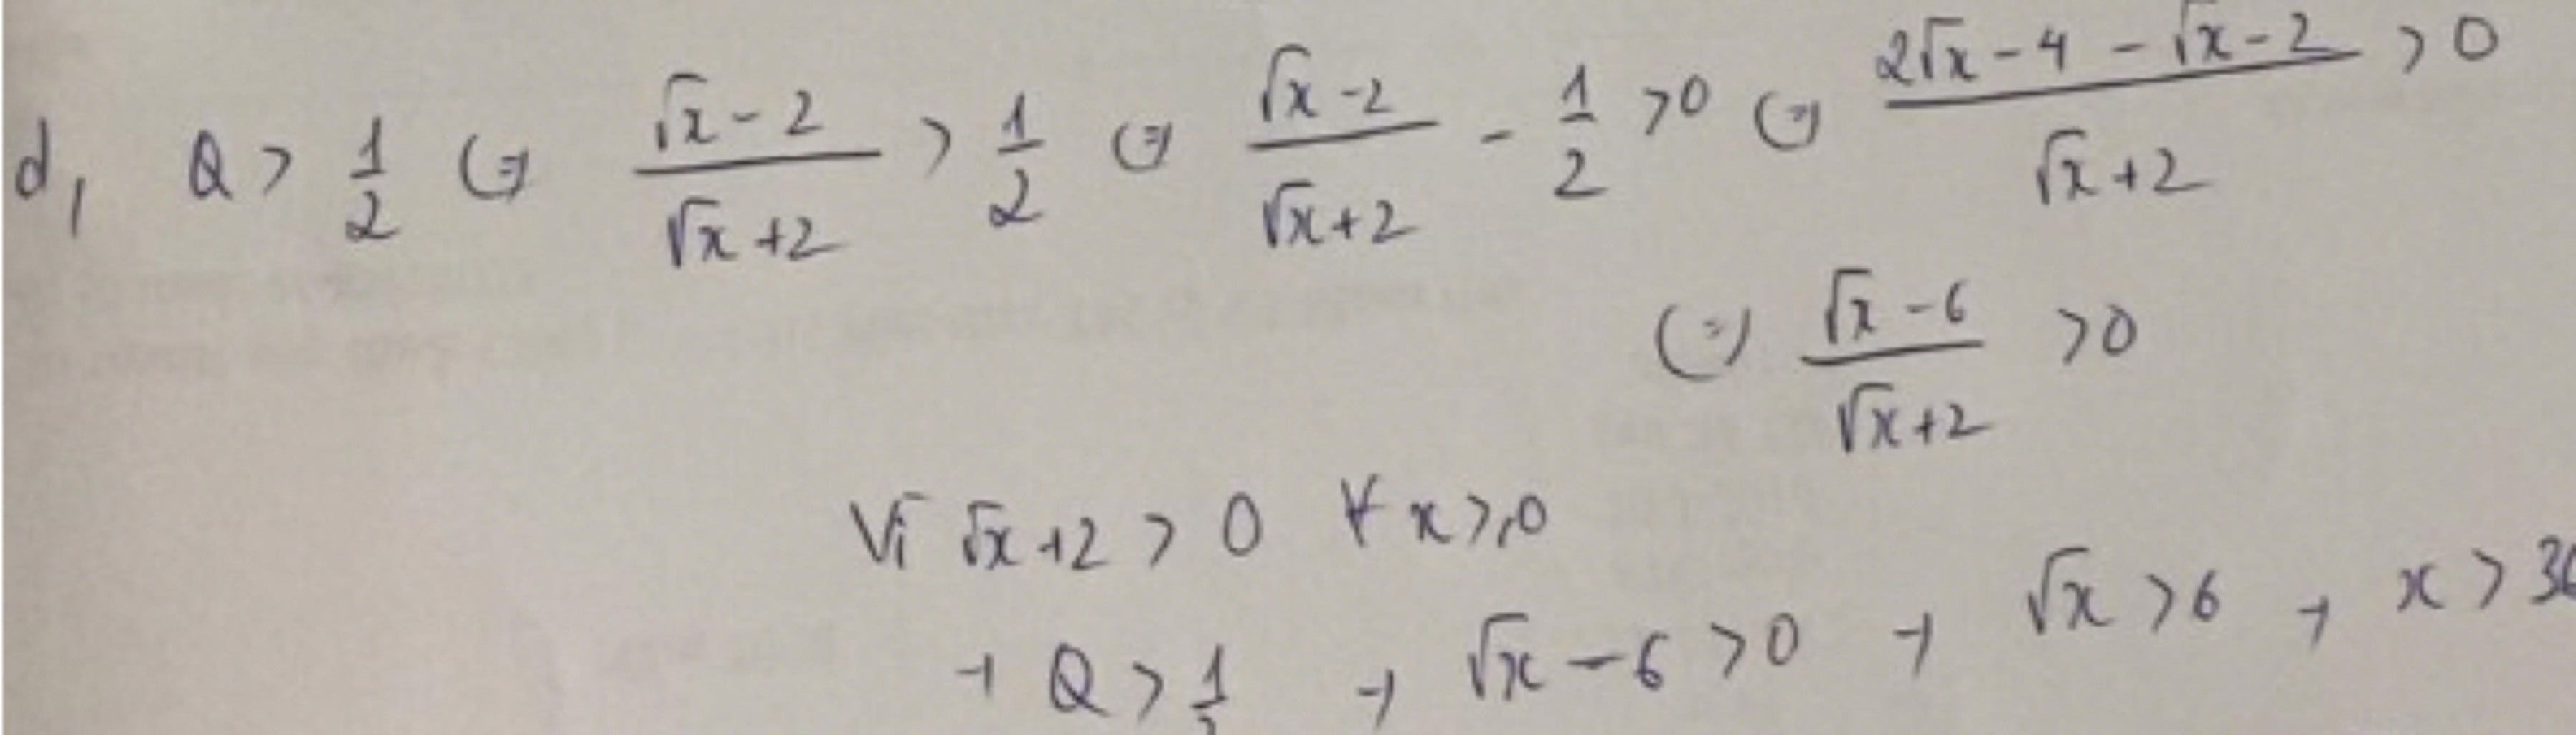 d, Q > 1/2 (=) (√x - 2)/(√x + 2) > 1/2 (=) (√x - 2)/(√x + 2) - 1/2 > 0 (=) (2√x - 4 - √x - 2)/(√x + 2) > 0
(=) (√x - 6)/(√x + 2) > 0
Vì √x + 2 > 0 ∀ x ⩾ 0
→ Q > 1/2 → √x - 6 > 0 → √x > 6 → x > 36